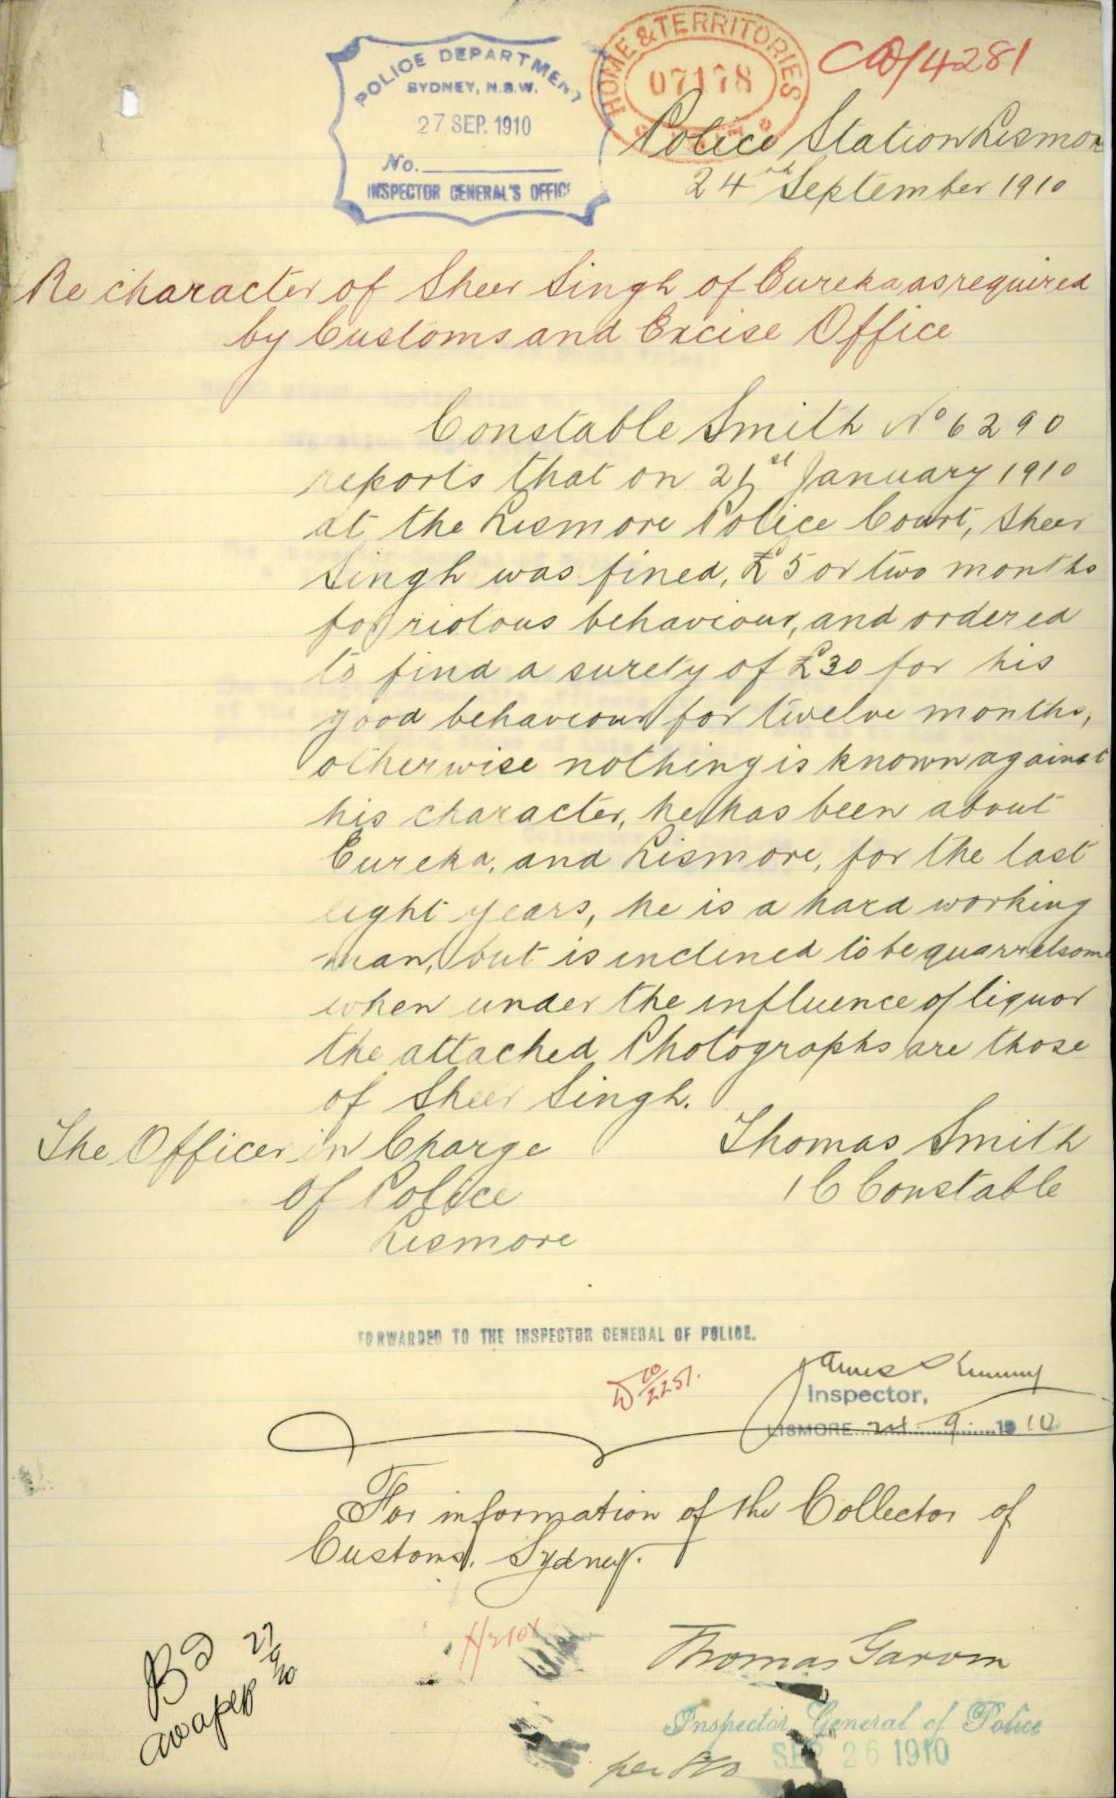 POLICE DEPARTMENT
SYDNEY, N.S.W.
27 SEP. 1910
No.
INSPECTOR GENERAL'S OFFICE
HOME & TERRITORIES
07178
14281
Police Station Lismore
24th September 1910
Re character of Sheer Singh of Eureka as required
by Customs and Excise Office
Constable Smith No 6290
reports that on 21st January 1910
at the Lismore Police Court, Sheer
Singh was fined, £5 or two months
for riotous behaviour, and ordered
to find a surety of £30 for his
good behaviour for twelve months,
otherwise nothing is known against
his character, he has been about
Eureka, and Lismore, for the last
eight years, he is a hard working
man, but is inclined to be quarrelsome
when under the influence of liquor
the attached Photographs are those
of Sheer Singh.
The Officer in Charge
of Police
Lismore
Thomas Smith
1 C Constable
FORWARDED TO THE INSPECTOR GENERAL OF POLICE.
10/2251.
James
Inspector,
LISMORE 24 . 9 . 1910
For information of the Collector of
Customs, Sydney.
27/9/10
Thomas Garvin
Inspector General of Police
SEP 26 1910
per